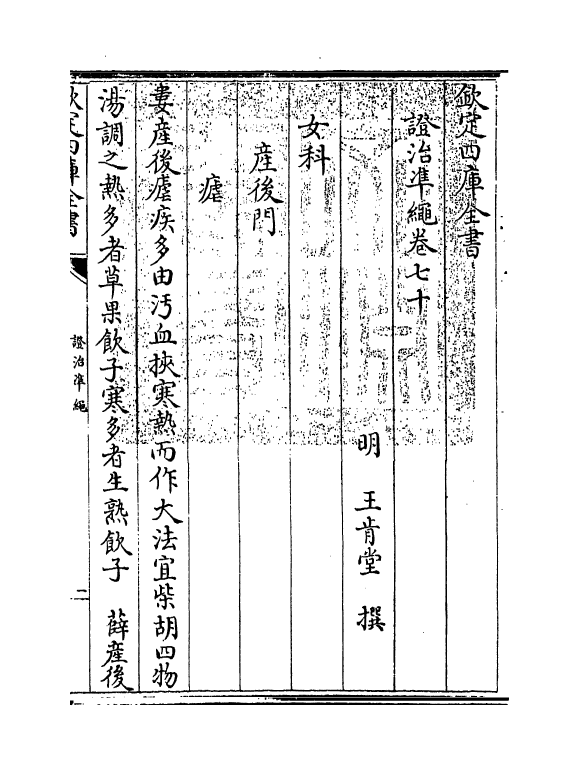 欽定四庫全書
證治準繩卷七十
明　王肯堂　撰
女科
産後門
瘧
婁産後瘧疾多由汚血挾寒熱而作大法宜柴胡四物
湯調之熱多者草果飲子寒多者生熟飲子　薛産後
欽定四庫全書
證治準繩
二